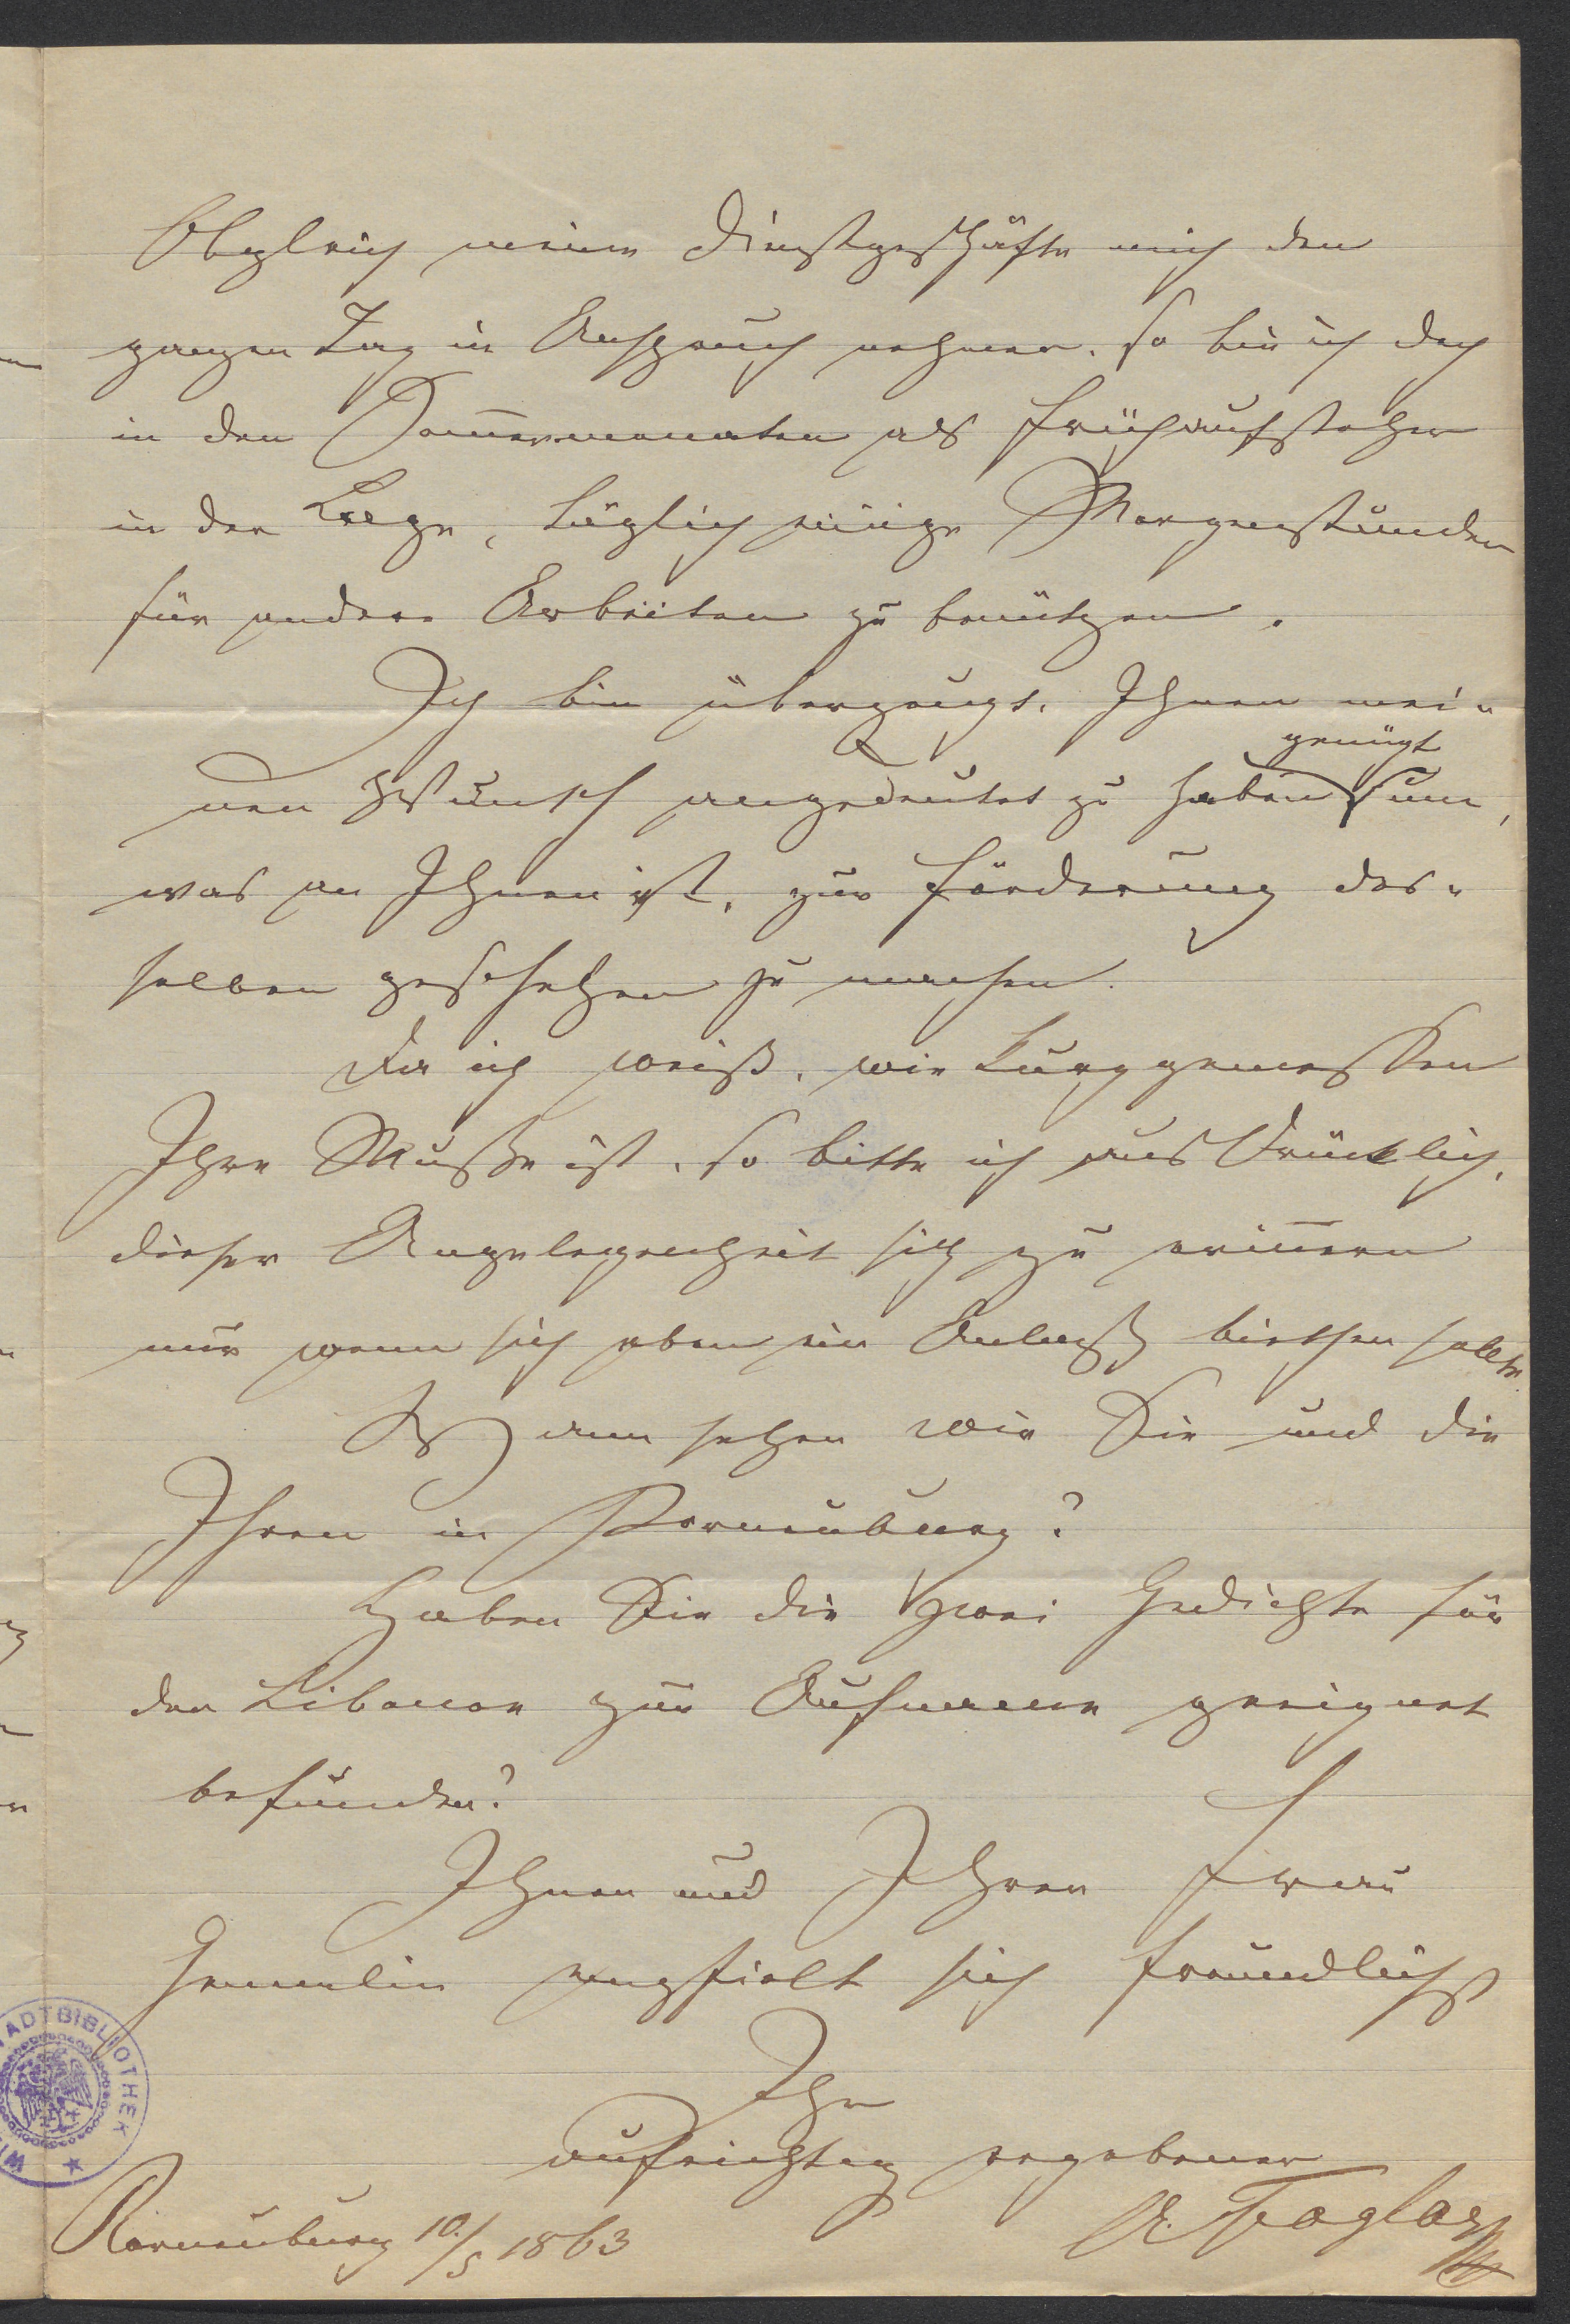 Obgleich meine Dienstgeschäfte mich den
ganzen Tag in Anspruch nehmen, so bin ich doch
in den Sommermonaten als Frühaufsteher
in der Lage, täglich einige Morgenstunden
für andere Arbeiten zu benützen.
Ich bin überzeugt, Ihnen mei-
genügt
nen Wunsch angedeutet zu haben um,
was an Ihnen ist, zur Förderung des-
selben geschehen zu machen.
Da ich weiß, wie kurzgemessen
Ihre Muße ist, so bitte ich ausdrücklich,
dieser Angelegenheit sich zu erinnern
nur wenn sich eben ein Anlaß biethen sollte.
Wann sehen wir Sie und die
Ihren in Korneuburg?
Haben Sie die zwei Gedichte für
den Libanon zur Aufname geeignet
befunden?
Ihnen und Ihrer Frau
Gemalin empfielt sich freundlichst
Ihr
aufrichtig ergebener
Korneuburg 10./5 1863
A. Foglar
STADTBIBLIOTHEK